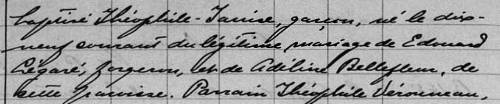 baptisé Théophile-Janvier, garçon, né le dix-
neuf courant du légitime mariage de Edouard
Légaré, forgeron, et de Adéline Bellefleur, de
cette paroisse. Parrain Théophile Véronneau,